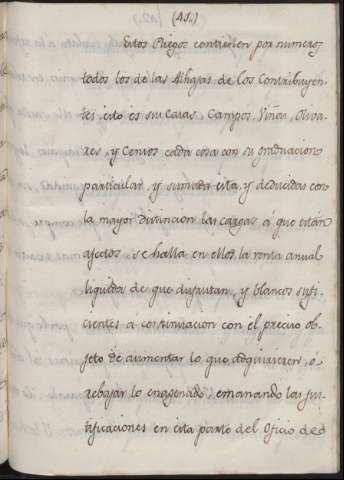 (41.)
Estos Pliegos contienen por numeros
todos los de las Alhajas de los Contribuyen-
tes, esto es sus Casas, Campos, Viñas, Oliva-
res, y Censos cada cosa con su graduacion
particular, y sumada esta, y deducidas con
la mayor distincion las cargas á que están
afectos, se halla en ellos la renta anual
liquida de que disfrutan, y blancos sufi-
cientes á continuacion con el preciso ob-
jeto de aumentar lo que adquirieren, ó
rebajar lo enagenado, emanando las jus-
tificaciones en esta parte del Oficio de